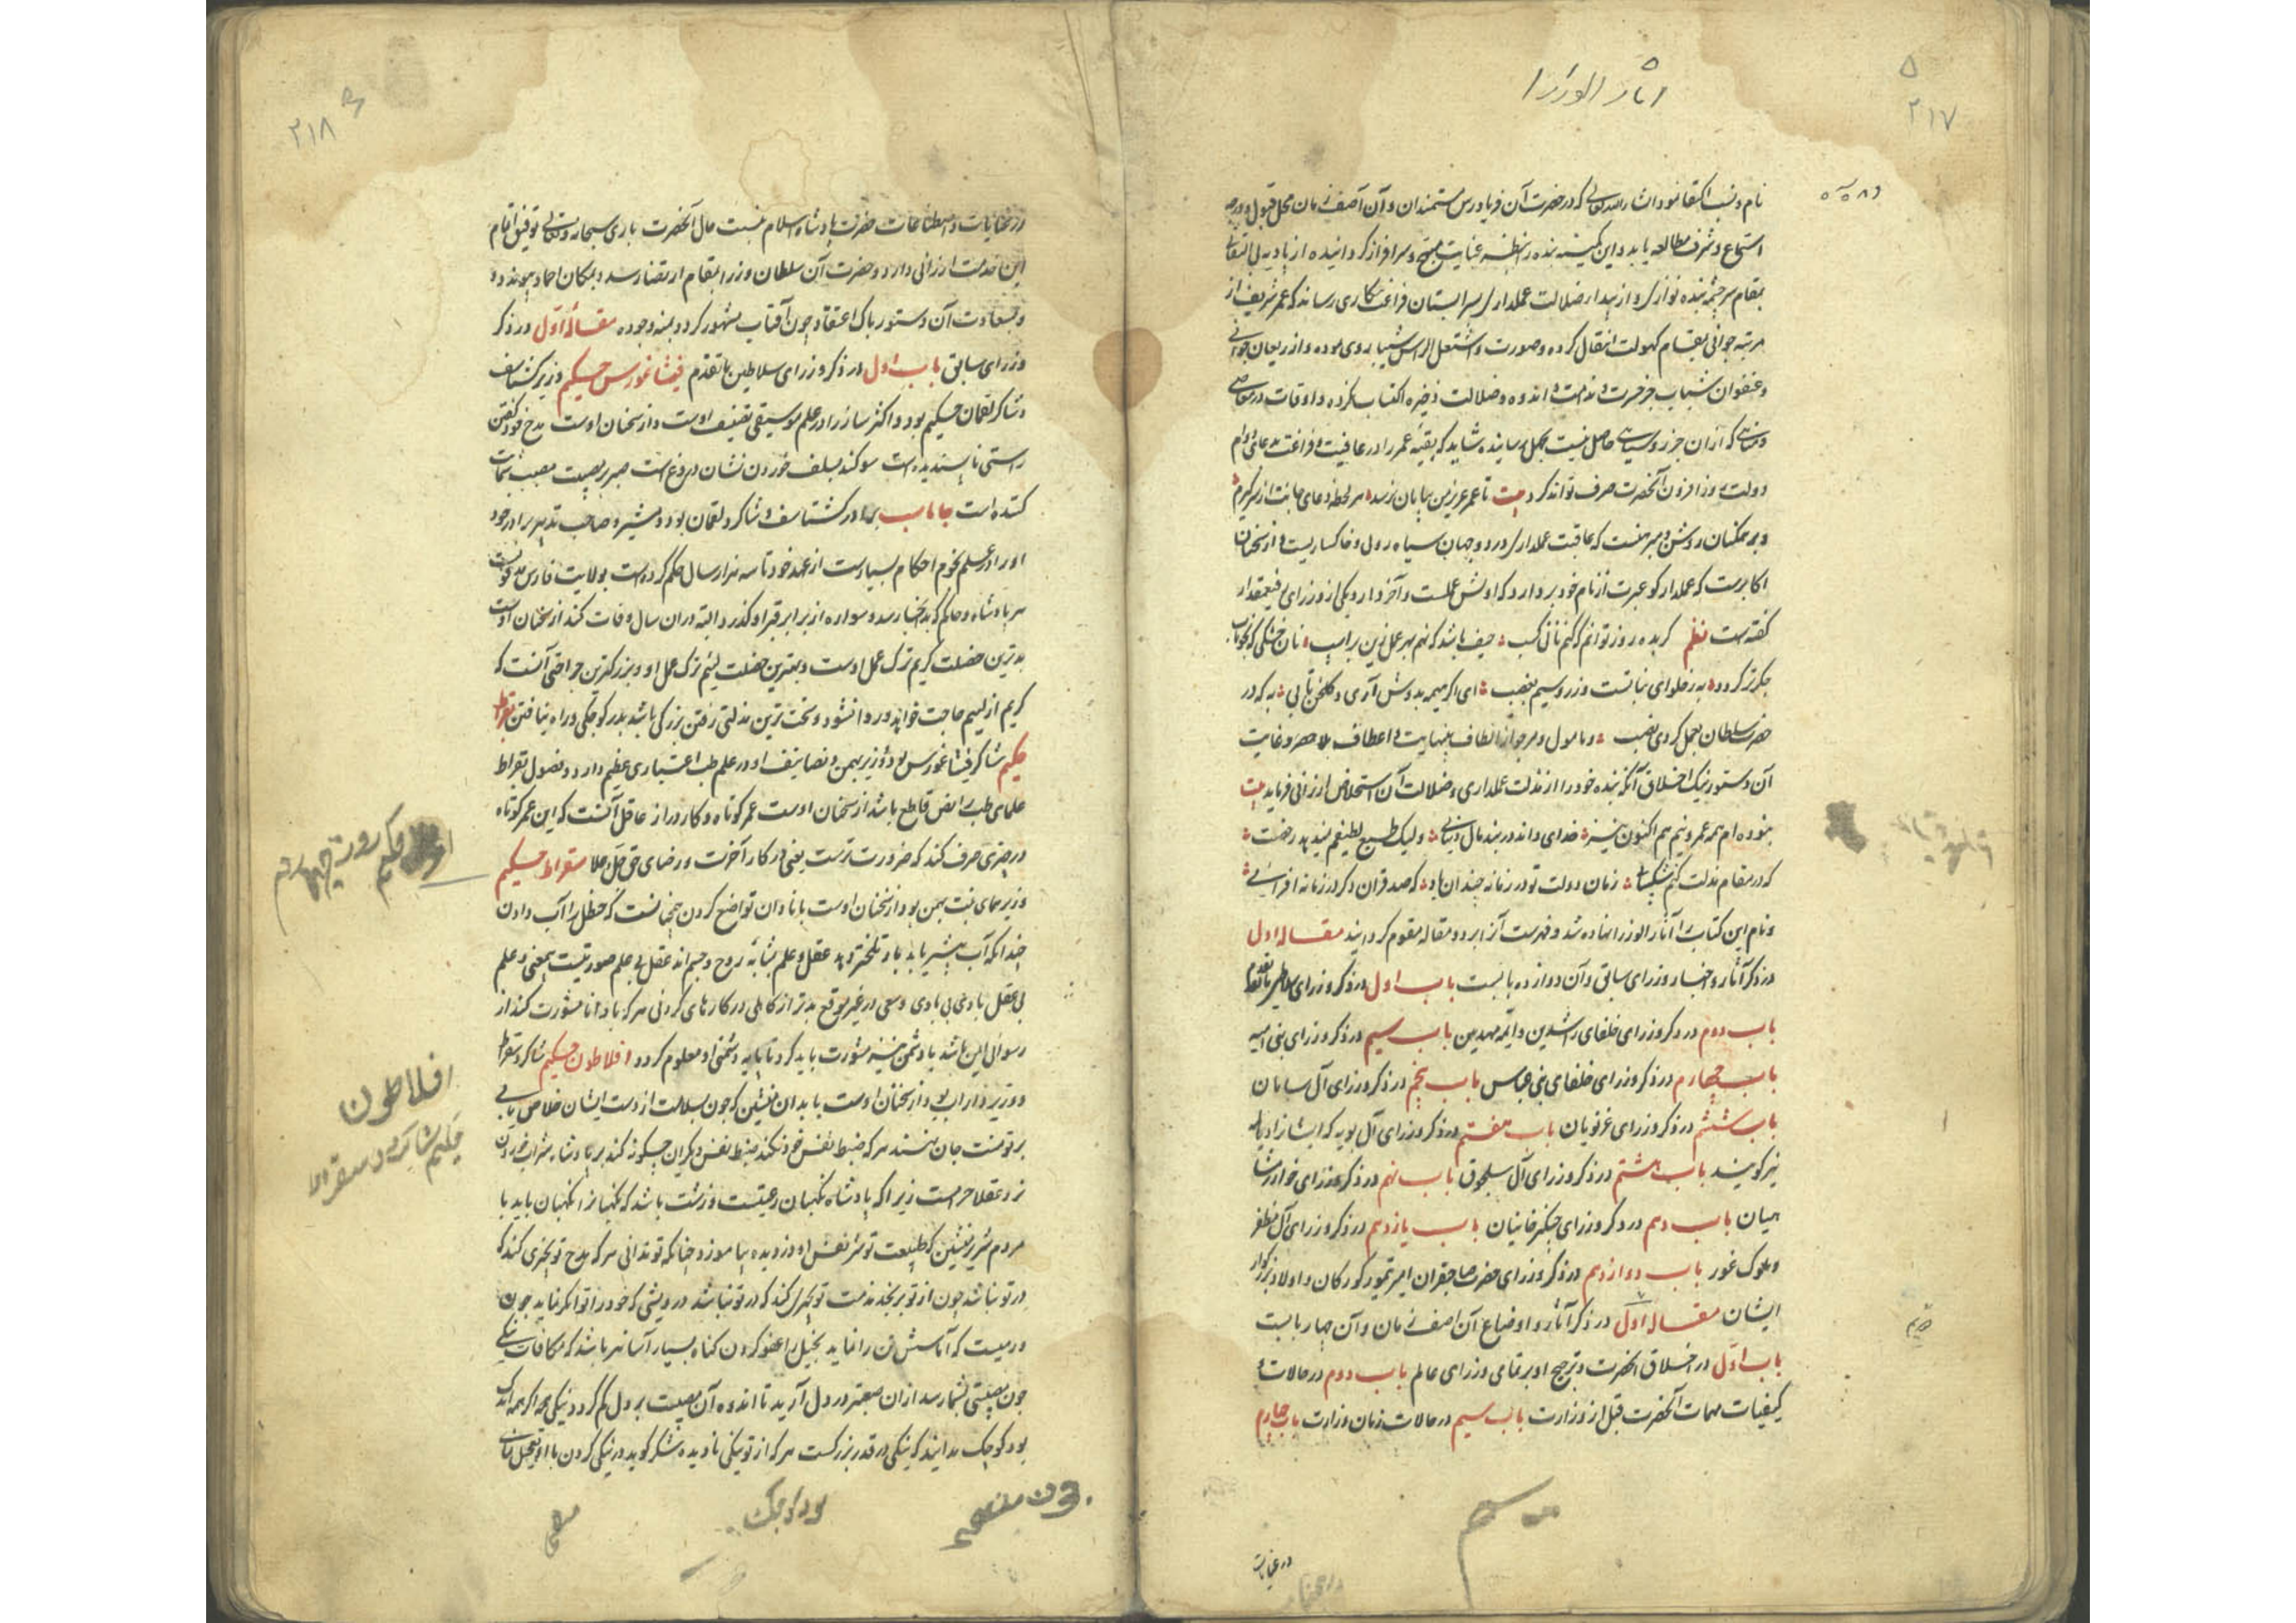 اثار الوزرا
۵
۲۱۷
نام و نسب اکتفا نمود انشاء الله تعالی که در حضرت آن فریادرس مستمندان و آن آصف زمان محل قبول و درجه
استماع و شرف مطالعه یابد و این کمینه بنده را بنظر عنایت و سرافراز گردانیده از بادیه بی التفاتی
بمقام سرچشمه بنده نوازی و از بیدار ضلالت عملداری بسرابستان فراغت کاری رساند که عمر شریف از
مرتبه جوانی بمقام کهولت انتقال کرده و صورت و اشتعل الراس شیبا روی نموده و از ریعان جوانی
و عنفوان شباب جز حسرت و ندامت و اندوه و ضلالت ذخیره اکتساب نکرده و اوقات در معاصی
که از آن جز روسیاهی حاصل نیست رسانیده شاید که بقیه عمر را در عافیت و فراغت بدعای دوام
دولت روز افزون آنحضرت صرف تواند کرد بیت تا عمر عزیز من بپایان نرسد هر لحظه دعای جانت از سر گیرم
و بر همگنان روشن و مبرهنست که عاقبت عملداری در دو جهان سیاه رویی و خاکساریست و از سخنان
اکابرست که عملدار کو عبرت از نام خود بردارد که اولش عملست و آخر دار و یکی از وزرای رفیعمقدار
گفتست نظم گر بده روز توانم که کنم نانی کسب حیف باشد که نهم بهر عمل زین بر اسب نان خشکی که بخوناب
جگر تر گردد به ز حلوای نباتست و زر و سیم بغصب ای اگر همیه بدوش آری و گلخن تابی به که در
حضرت سلطان بعمل گردی نصب و مامول و مرجو از الطاف بینهایت و اعطاف بلا حصر و غایت
آن دستور نیک اخلاق آنکه بنده خود را از مذلت عملداری و ضلالت آن استخلاص ارزانی فرماید بیت
نبوده‌ام همه عمر و نیم هم اکنون نیز خدای داند در بند مال دنیایی ولیک طبع لطیفم نمیدهد رخصت
که در مقام مذلت کنم شکیبایی زمان دولت تو در زمانه چندان باد که صد قران دگر در زمانه افزایی
و نام این کتاب را آثار الوزرا نهاده شد و فهرست آن بر دو مقاله مرقوم گردانید مقاله اول
در ذکر آثار و اخبار وزرای سابق و آن دوازده بابست باب اول در ذکر وزرای سلاطین ما تقدم
باب دوم در ذکر وزرای خلفای راشدین و ایمه مهدیین باب سیم در ذکر وزرای بنی امیه
باب چهارم در ذکر وزرای خلفای بنی عباس باب پنجم در ذکر وزرای آل سامان
باب ششم در ذکر وزرای غزنویان باب هفتم در ذکر وزرای آل بویه که ایشانرا دیالمه
نیز گویند باب هشتم در ذکر وزرای آل سلجوق باب نهم در ذکر وزرای خوارزمشا
هیان باب دهم در ذکر وزرای چنگیزخانیان باب یازدهم در ذکر وزرای آل مظفر
و ملوک غور باب دوازدهم در ذکر وزرای حضرت صاحبقران امیر تیمور گورکان و اولاد بزرگوار
ایشان مقاله اول در ذکر آثار و اوضاع آن آصف زمان و آن چهار بابست
باب اول در اخلاق آنحضرت و ترجیح او بر تمامی وزرای عالم باب دوم در حالات و
کیفیات مهمات آنحضرت قبل از وزارت باب سیم در حالات زمان وزارت باب چهارم
در عنایات
۲۱۸
در عنایات و اصطناعات حضرت پادشاه اسلام بنسبت حال آنحضرت باری سبحانه و تعالی توفیق اتمام
این خدمت ارزانی دارد و حضرت آن سلطان وزرا بمقام ارتضا رسد و بمکان احماد پیوندد و
و بسعادت آن دستور پاک اعتقاد چون آفتاب مشهور گردد بمنه وجوده مقاله اول در ذکر
وزرای سابق باب اول در ذکر وزرای سلاطین ما تقدم فیثاغورس حکیم وزیر گشتاسف
و شاگرد لقمان حکیم بود و اکثر سازرا در علم موسیقی تصنیف اوست و از سخنان اوست مدح خود گفتن
راستی ناپسندیده است سوگند بسلف خوردن نشان دروغ است صبر بر مصیبت مصیبت شماتت
کننده است جاماسب برادر گشتاسف و شاگرد لقمان بود و مشیر و صاحب تدبیر برادر خود
او را در علم نجوم احکام بسیارست از عهد خود تا سه هزار سال حکم کرده است بولایت فارس مدفونست
هر پادشاه و حاکم که بدانجا رسد و سواره از برابر قبر او گذرد البته در آن سال وفات کند از سخنان اوست
بدترین خصلت کریم ترک عمل اوست و بهترین خصلت لئیم ترک عمل او و بزرگترین جراحتی آنست که
کریم از لئیم حاجت خواهد و روا نشود و سخت ترین مذلتی رفتن بزرگی باشد بدر کوچکی و راه نیافتن بقراط
حکیم شاگرد فیثاغورس بود و وزیر بهمن و تصانیف او در علم طب اعتباری عظیم دارد و فصول بقراط
علمای طب را نص قاطع باشد از سخنان اوست عمر کوتاه و کار دراز عاقل آنست که این عمر کوتاه
در چیزی صرف کند که ضرورت ترست یعنی در کار آخرت و رضای حق جل و علا سقراط حکیم
وزیر همای بنت بهمن بود از سخنان اوست با نادان تواضع کردن همچنانست که حنظل را آب دادن
چندانکه آب بیشتر یابد بار تلختر دهد عقل و علم بمثابه روح و جسم‌اند عقل بی علم صورتیست بیمعنی و علم
بی عقل بادی و سعی در غیر موقع بدتر از کاهلی در کارهای کردنی هر که با دانا مشورت کند از
رسوائی ایمن باشد با دشمن نیز مشورت باید کرد تا پایه دشمنی او معلوم گردد افلاطون حکیم شاگرد سقراط
و وزیر داراب بود از سخنان اوست با بدان منشین که چون بسلامت از دست ایشان خلاص یابی
بر تو منت جان نهند هر که ضبط نفس خود نکند ضبط نفس دیگران چگونه کند بر پادشاه شراب خوردن
نزد عقلا حرامست زیرا که پادشاه نگهبان رعیتست و زشت باشد که نگهبانرا نگهبان باید با
مردم شریر منشین که طبیعت تو شر نفس او دزدیده بیاموزد چنانکه تو ندانی هر که مدح تو بچیزی کند که
در تو نباشد چون از تو برنجد مذمت تو بچیزی کند که در تو نباشد درویشی که خود را توانگر نماید چون
ورمیست که آماسش تن را نماید بخیل را عفو کردن گناه بسیار آسانتر باشد که مکافات نیکی
چون مصیبتی بشما رسد از آن صعبتر در دل آرید تا اندوه آن مصیبت بر دل کم گردد نیکی مجو اگر چه اندک
بود کوچک مدانید که نیکی در قدر بزرگست هر که از تو نیکی نادیده شکر گوید در نیکی کردن با او تعجیل نمای
افلاطون
حکیم شاگرد سقراط
بود کوچک